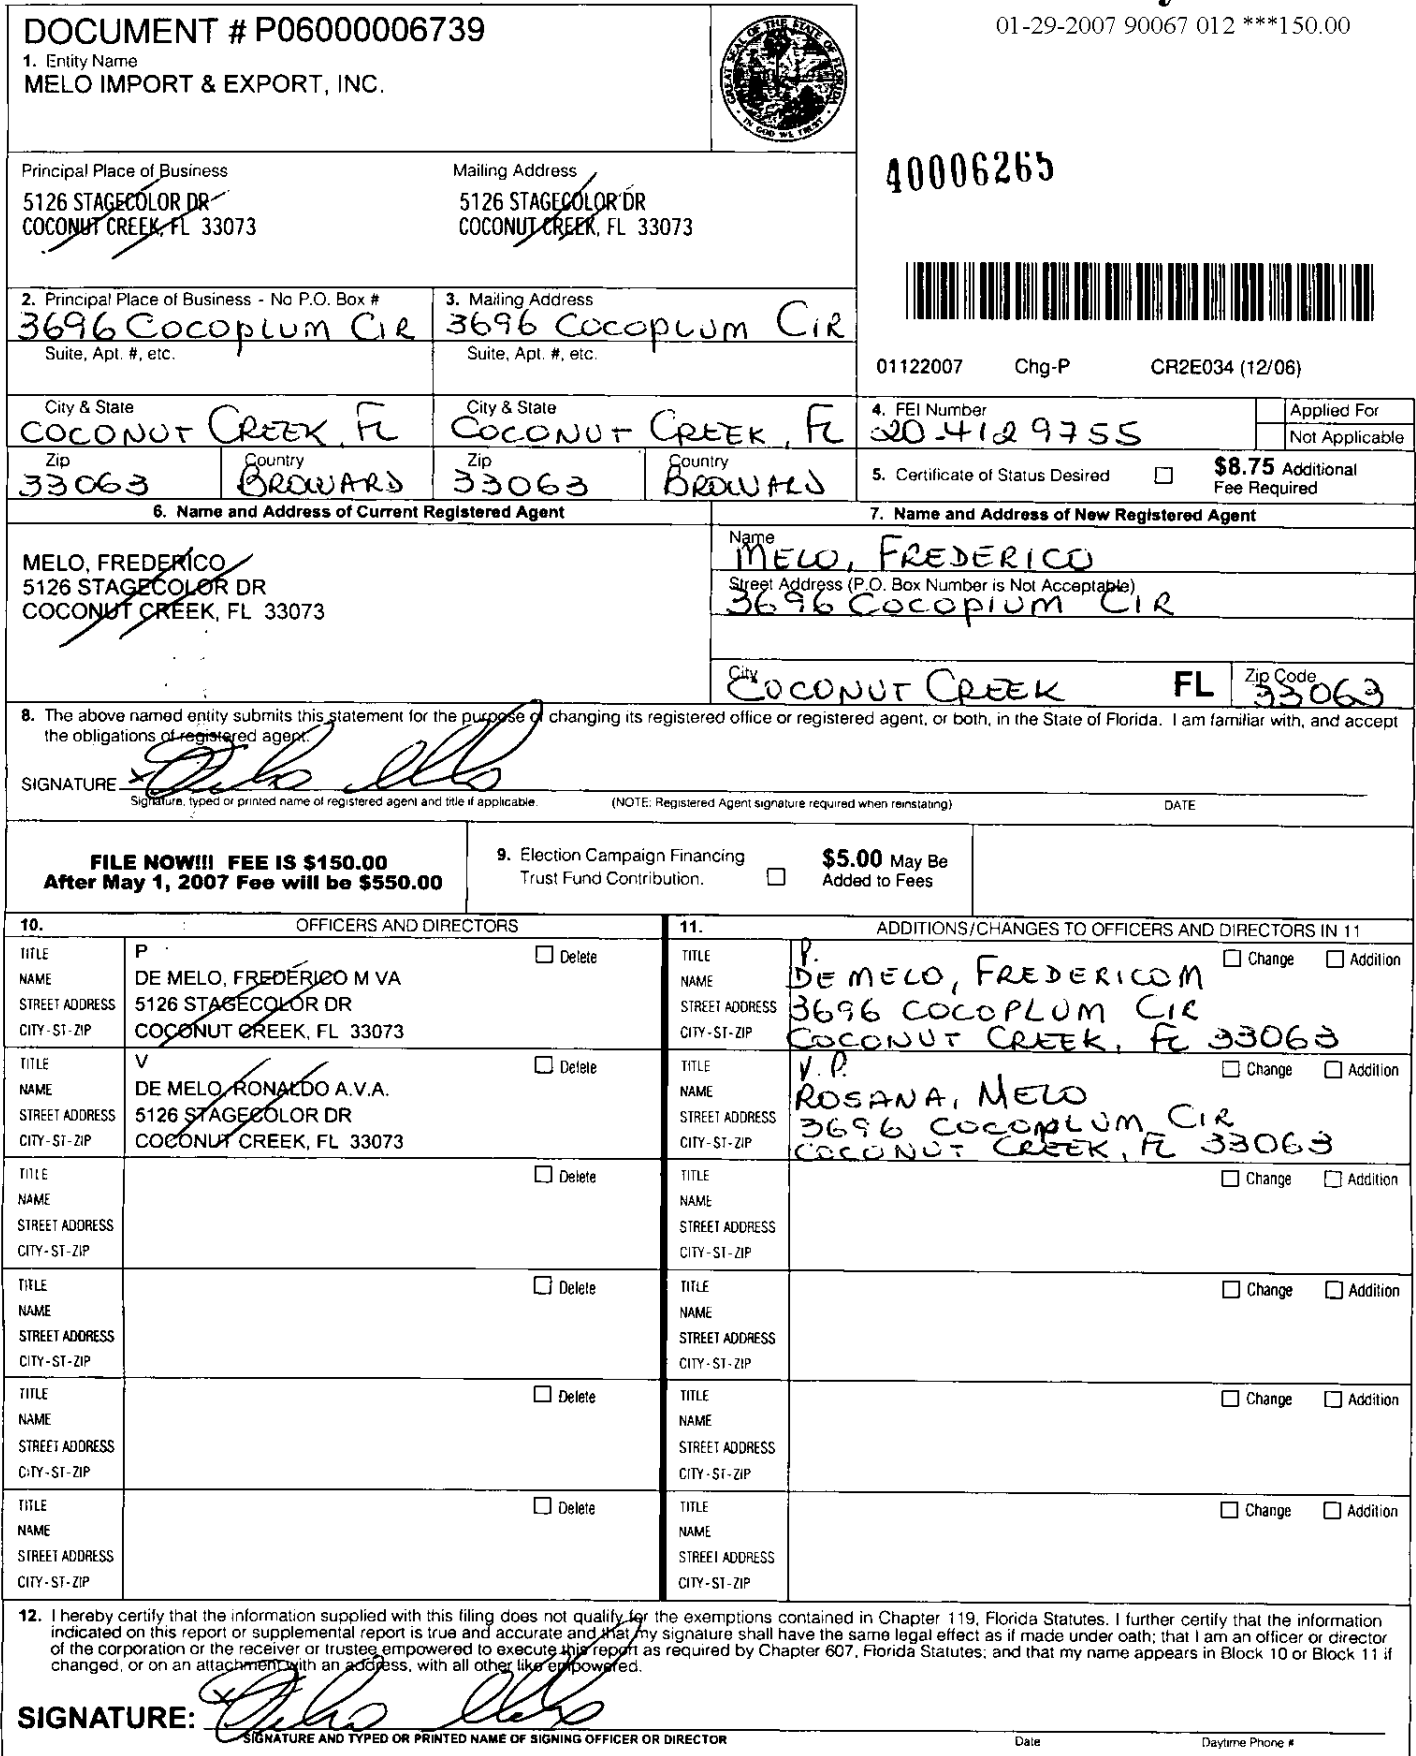 DOCUMENT # P06000006739
1. Entity Name
MELO IMPORT & EXPORT, INC.
GREAT SEAL OF THE STATE OF FLORIDA
IN GOD WE TRUST
01-29-2007 90067 012 ***150.00
Principal Place of Business
5126 STAGECOLOR DR
COCONUT CREEK, FL 33073
Mailing Address
5126 STAGECOLOR DR
COCONUT CREEK, FL 33073
40006265
2. Principal Place of Business - No P.O. Box #
3696 COCOPLUM CIR
Suite, Apt. #, etc.
3. Mailing Address
3696 COCOPLUM CIR
Suite, Apt. #, etc.
01122007 Chg-P CR2E034 (12/06)
City & State
COCONUT CREEK, FL
City & State
COCONUT CREEK, FL
4. FEI Number
20-4129755
Applied For
Not Applicable
Zip
33063
Country
BROWARD
Zip
33063
Country
BROWARD
5. Certificate of Status Desired
$8.75 Additional
Fee Required
6. Name and Address of Current Registered Agent
MELO, FREDERICO
5126 STAGECOLOR DR
COCONUT CREEK, FL 33073
7. Name and Address of New Registered Agent
Name
MELO, FREDERICO
Street Address (P.O. Box Number is Not Acceptable)
3696 COCOPLUM CIR
City
COCONUT CREEK
FL
Zip Code
33063
8. The above named entity submits this statement for the purpose of changing its registered office or registered agent, or both, in the State of Florida. I am familiar with, and accept
the obligations of registered agent.
SIGNATURE X
Signature, typed or printed name of registered agent and title if applicable. (NOTE: Registered Agent signature required when reinstating) DATE
FILE NOW!!! FEE IS $150.00
After May 1, 2007 Fee will be $550.00
9. Election Campaign Financing
Trust Fund Contribution.
$5.00 May Be
Added to Fees
10. OFFICERS AND DIRECTORS
TITLE P Delete
NAME DE MELO, FREDERICO M VA
STREET ADDRESS 5126 STAGECOLOR DR
CITY-ST-ZIP COCONUT CREEK, FL 33073
TITLE V Delete
NAME DE MELO, RONALDO A.V.A.
STREET ADDRESS 5126 STAGECOLOR DR
CITY-ST-ZIP COCONUT CREEK, FL 33073
TITLE Delete
NAME
STREET ADDRESS
CITY-ST-ZIP
TITLE Delete
NAME
STREET ADDRESS
CITY-ST-ZIP
TITLE Delete
NAME
STREET ADDRESS
CITY-ST-ZIP
TITLE Delete
NAME
STREET ADDRESS
CITY-ST-ZIP
11. ADDITIONS/CHANGES TO OFFICERS AND DIRECTORS IN 11
TITLE P. Change Addition
NAME DE MELO, FREDERICO M
STREET ADDRESS 3696 COCOPLUM CIR
CITY-ST-ZIP COCONUT CREEK, FL 33063
TITLE V.P. Change Addition
NAME ROSANA, MELO
STREET ADDRESS 3696 COCOPLUM CIR
CITY-ST-ZIP COCONUT CREEK, FL 33063
TITLE Change Addition
NAME
STREET ADDRESS
CITY-ST-ZIP
TITLE Change Addition
NAME
STREET ADDRESS
CITY-ST-ZIP
TITLE Change Addition
NAME
STREET ADDRESS
CITY-ST-ZIP
TITLE Change Addition
NAME
STREET ADDRESS
CITY-ST-ZIP
12. I hereby certify that the information supplied with this filing does not qualify for the exemptions contained in Chapter 119, Florida Statutes. I further certify that the information
indicated on this report or supplemental report is true and accurate and that my signature shall have the same legal effect as if made under oath; that I am an officer or director
of the corporation or the receiver or trustee empowered to execute this report as required by Chapter 607, Florida Statutes; and that my name appears in Block 10 or Block 11 if
changed, or on an attachment with an address, with all other like empowered.
SIGNATURE: X
SIGNATURE AND TYPED OR PRINTED NAME OF SIGNING OFFICER OR DIRECTOR Date Daytime Phone #